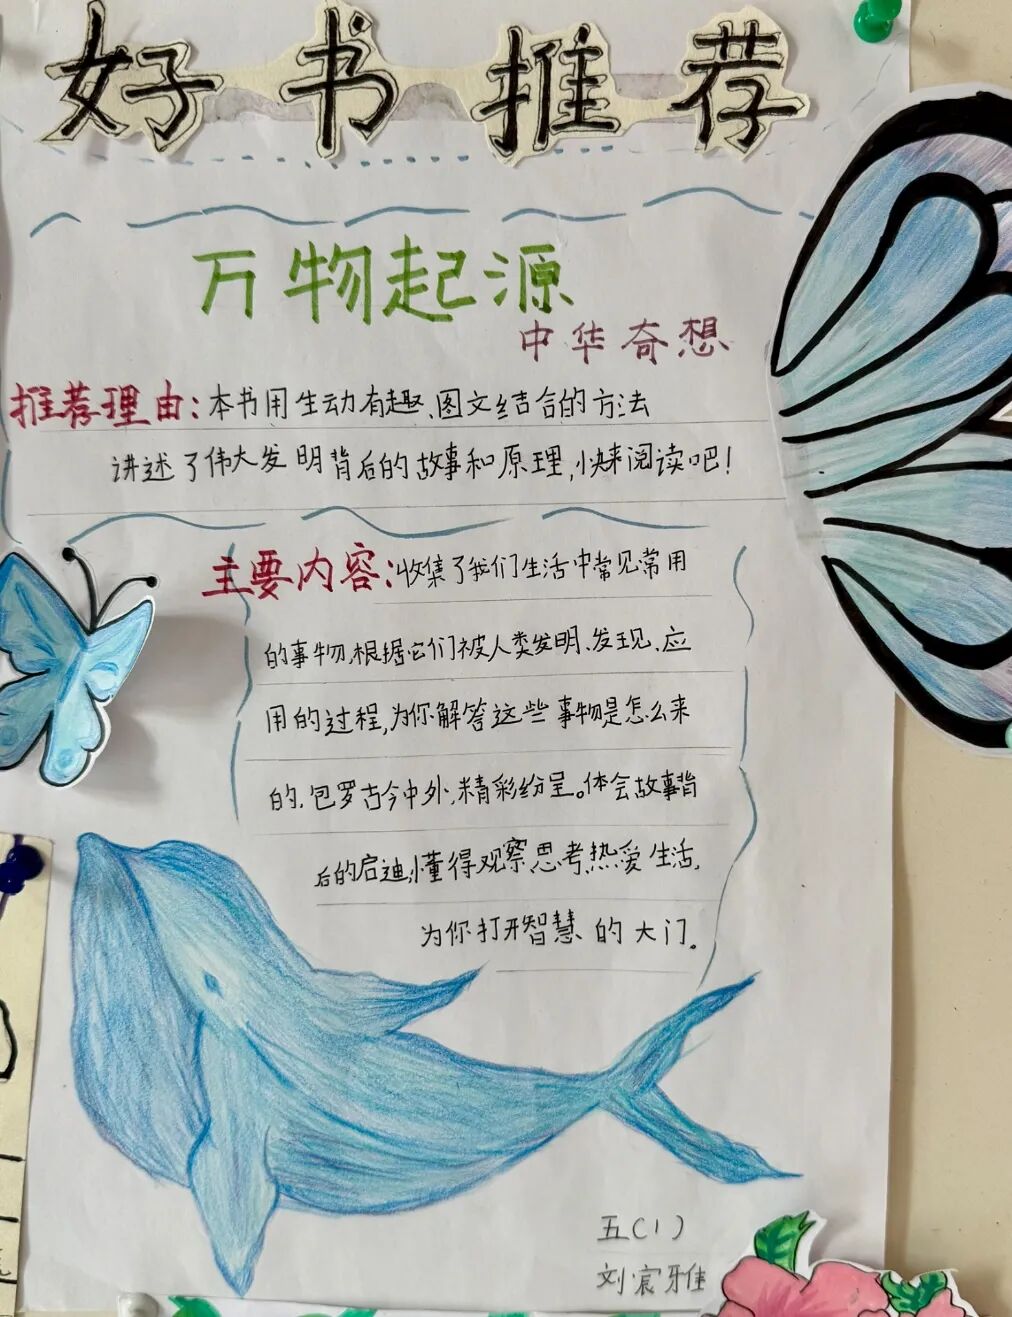 好书推荐
万物起源
中华奇想
推荐理由:本书用生动有趣、图文结合的方法
讲述了伟大发明背后的故事和原理,快来阅读吧!
主要内容:收集了我们生活中常见常用
的事物,根据它们被人类发明、发现、应
用的过程,为你解答这些事物是怎么来
的,包罗古今中外,精彩纷呈。体会故事背
后的启迪,懂得观察思考,热爱生活,
为你打开智慧的大门。
五(1)
刘宸雅